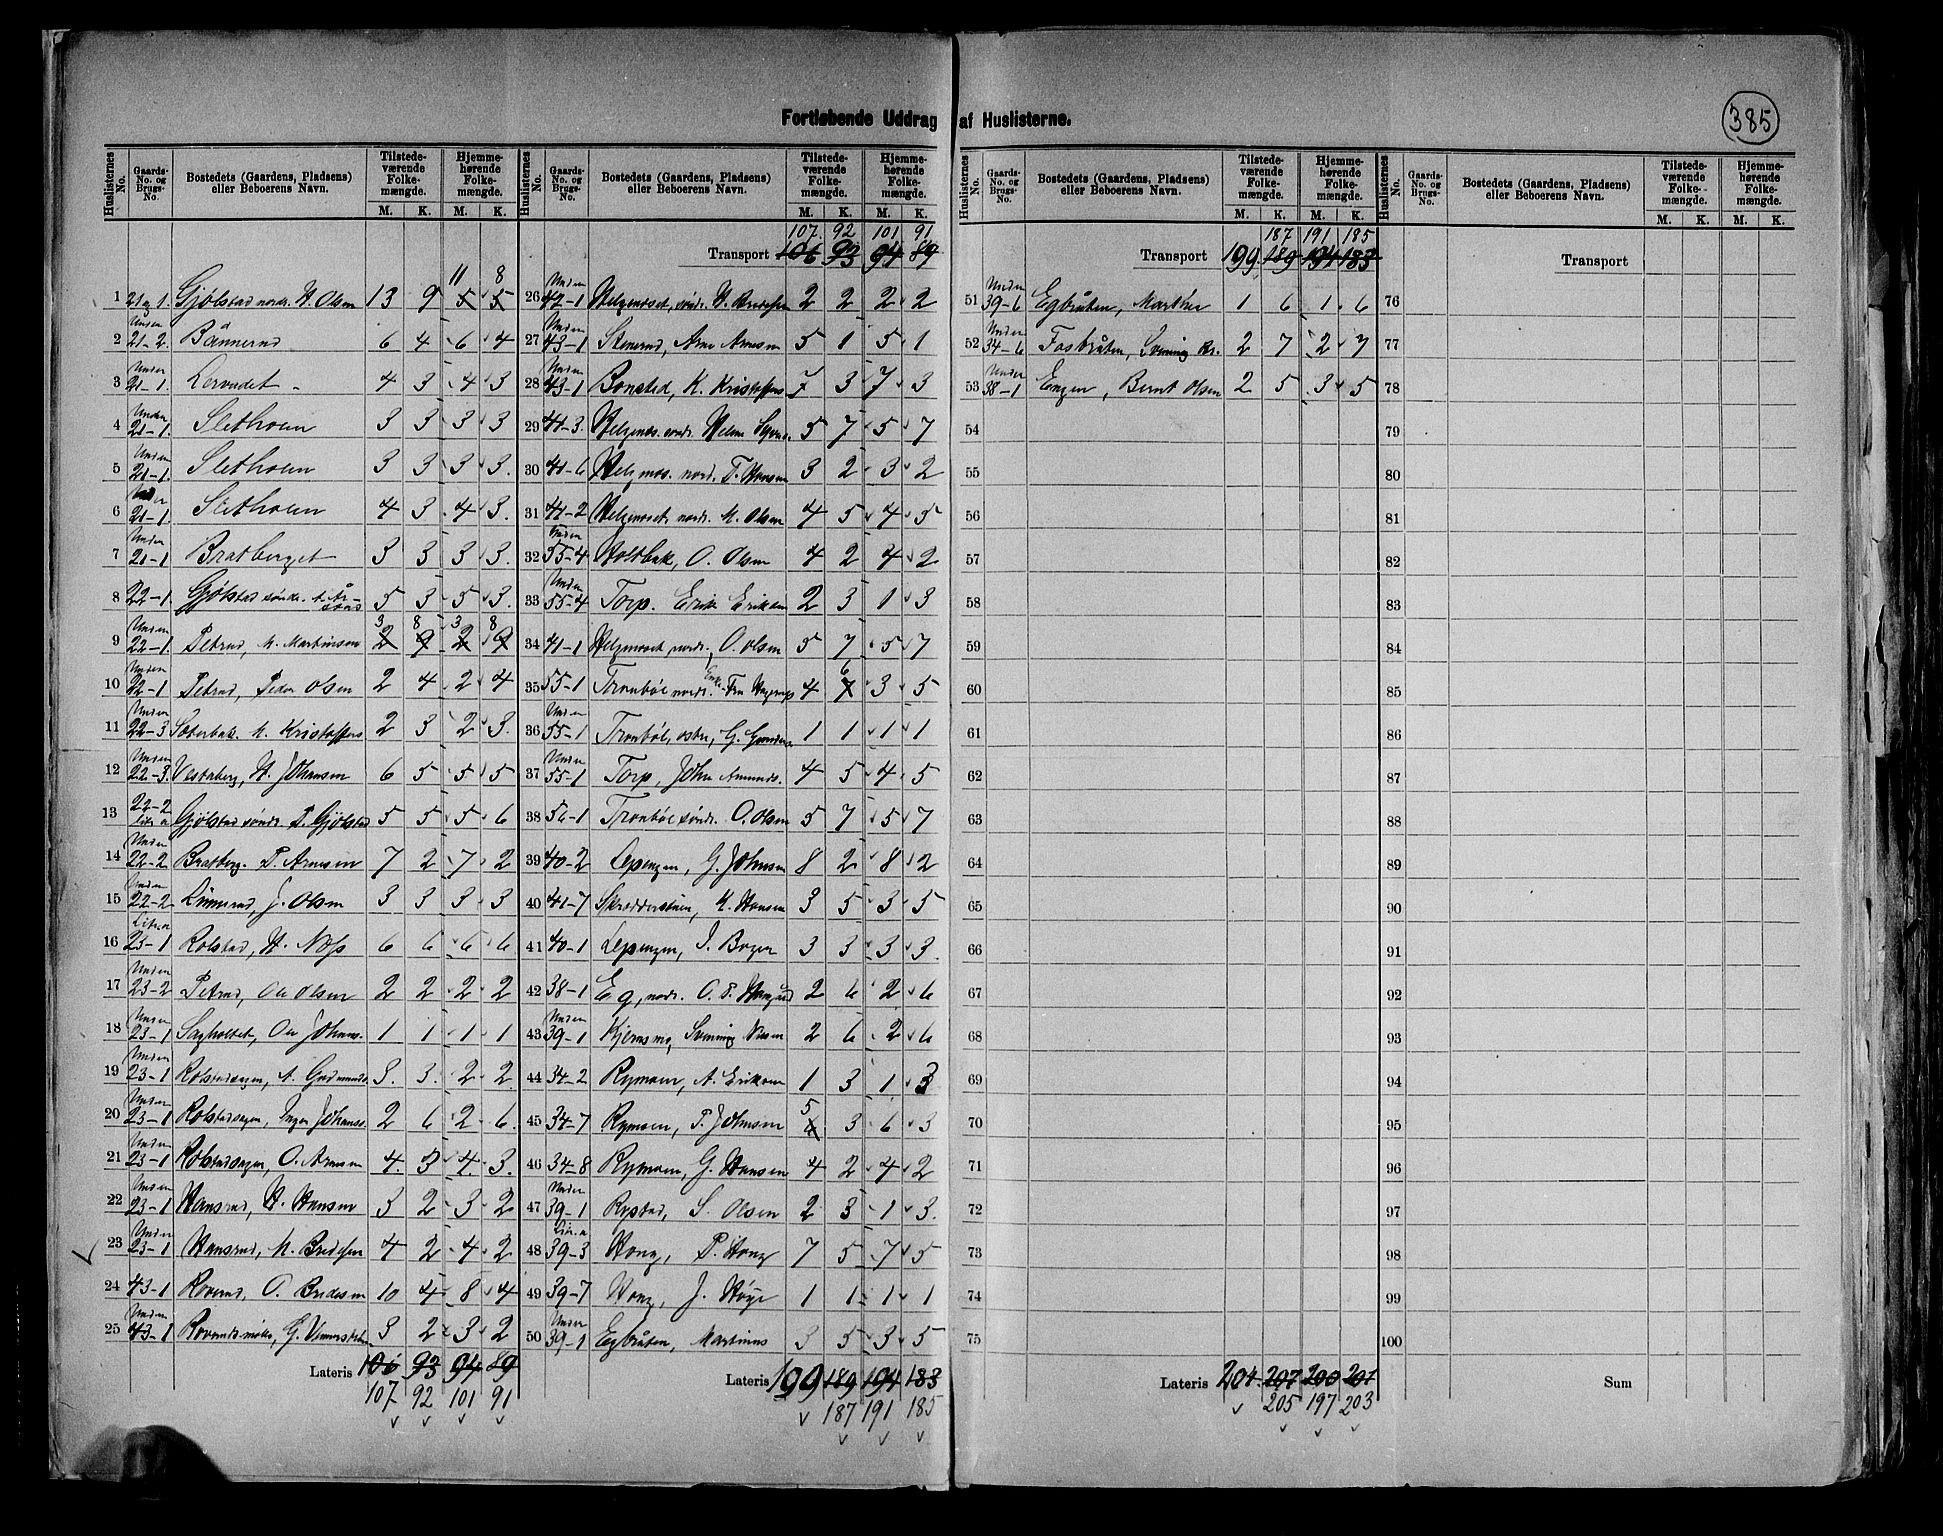 385
Fortløbende Uddrag af Huslisterne.
Huslisternes No. Gaards- No. og Brugs- No. Bostedets (Gaardens, Pladsens) eller Beboerens Navn. Tilstede- værende Folke- mængde. Hjemme- hørende Folke- mængde.
M. K. M. K.
11 8
1 21-1 Gjølstad nordr. H. Olsen 13 9 5 5
2 Under 21-2. Bånnerud 6 4 6 4
3 Under 21-1. 4 3 4 3
4 Under 21-1. Slethoen 3 3 3 3
5 Under 21-1. Slethoen 3 3 3 3.
6 Under 21-1. Slethoen 4 3 4 3.
7 Under 21-1 Bratberget 3 3 3 3.
8 22-1. Gjølstad søndr. 5 3 5 3.
3 8 3 8
9 Under 22-1. Petrud, M. Martinsen 2 9 2 9
10 Under 22-1 Petrud, Peder Olsen 2 4 2 4
11 Under 22-3 K. Kristoffers 2 3 2 3.
12 Under 22-3. Vestaberg, H. Johansen 6 5 5 5
13 22-2 Gjølstad søndr. P. Gjølstad 5 5 5 6
14 Under 22-2 Bratberg. P. Arnesen 7 2 7 2
15 Under 22-2 Linnerud, J. Olsen 3 3 3 3
16 Litr. a 23-1 Rolstad, H. Næss 6 6 6 6
17 Under 23-2 Petrud, Ole Olsen 2 2 2 2
18 Under 23-1 Sagholtet, Ole Johans. 1 1 1 1
19 Under 23-1 Rolstadsagen, A. Gudmunds. 3. 3. 2 2.
20 Under 23-1 Rolstadsagen, Inger Johans. 2 6 2 6.
21 Under 23-1 Rolstadsagen, O. Arnesen 4. 3 4 3.
22 Under 23-1 Hansrud, H. Hansen 3 2 3 2
23 Under 23-1 Hansrud, M. Bredesen 4 2 4 2
24 43-1 Roverud, O. Bredesen 10 4 8 4
25 Under 43-1 Roverudsmølle, G. 3 2 3 2
Lateris 106 93 94 89
107 92 101 91
Huslisternes No. Gaards- No. og Brugs- No. Bostedets (Gaardens, Pladsens) eller Beboerens Navn. Tilstede- værende Folke- mængde. Hjemme- hørende Folke- mængde.
M. K. M. K.
107. 92 101 91
Transport 106 93 94 89
26 Under 42-1 Helgemoset, søndr. H. Bredesen 2 2 2 2
27 Under 43-1 Skinerud, Arne Arnesen 5 1 5 1
28 Under 43-1 Bonsted, K. Kristoffers 7 3 7 3
29 41-3 søndr. 5 7 5 7
30 41-6 nordr. T. Hansen 3 2 3 2
31 41-2 Helgmoset nordr. M. Olsen 4 5 4 5
32 Under 55-4 Holtbak, O. Olsen 4 2 4 2
33 Under 55-4 Torp. Erik Eriksen 2 3 1 3
34 41-1 Helgmoset nordr., O. Olsen 5 7 5 7
6
35 55-1 Tronbøl nordr. Enke-Fru 4 7 3 5
36 Under 55-1 Tronbøl, østre, G. 1 1 1 1
37 Under 55-1 Torp, John Amunds. 4 5 4 5
38 56-1 Tronbøl søndr. O. Olsen 5 7 5 7
39 40-2 Lepengen, G. Johnsen 8 2 8 2
40 41-7 Skrædderstuen, K. Hansen 3 5 3 5
41 40-1 Lepengen, J. Boger 3 3 3 3.
42 38-1 Eg, nordr. O. P. 2 6 2 6
43 Under 39-1 Kjernsmo, Svenning Nilsen 2 6 2 6
44 34-2 Rymoen, A. Eriksen 1 3 1 3
5
45 34-7 Rymoen, P. Johnsen 6 3 6 3
46 34-8 Rymoen, G. Hansen 4 2 4 2
47 Under 39-1 Rystad, S. Olsen 2 3 1 3.
48 Litr. a 39-3 Houg, P. Houg 7 5 7 5
49 39-7 Houg, J. Høye 1 1 1 1
50 Under 39-1 Egbråten Martinus 3 5 3 5
Lateris 199 189 194 183
187 191 185
Huslisternes No. Gaards- No. og Brugs- No. Bostedets (Gaardens, Pladsens) eller Beboerens Navn. Tilstede- værende Folke- mængde. Hjemme- hørende Folke- mængde.
M. K. M. K.
187 191 185
Transport 199. 189 194 183
51 Under 39-6 Egbråten, Marthe 1 6 1 6
52 Under 34-6 Fosbråten, Svenning 2 7 2 7
53 Under 38-1 Engen, Bernt Olsen 2 5 3 5
54
55
56
57
58
59
60
61
62
63
64
65
66
67
68
69
70
71
72
73
74
75
Lateris 204. 207 200 201
205 197 203
Huslisternes No. Gaards- No. og Brugs- No. Bostedets (Gaardens, Pladsens) eller Beboerens Navn. Tilstede- værende Folke- mængde. Hjemme- hørende Folke- mængde.
M. K. M. K.
Transport
76
77
78
79
80
81
82
83
84
85
86
87
88
89
90
91
92
93
94
95
96
97
98
99
100
Sum